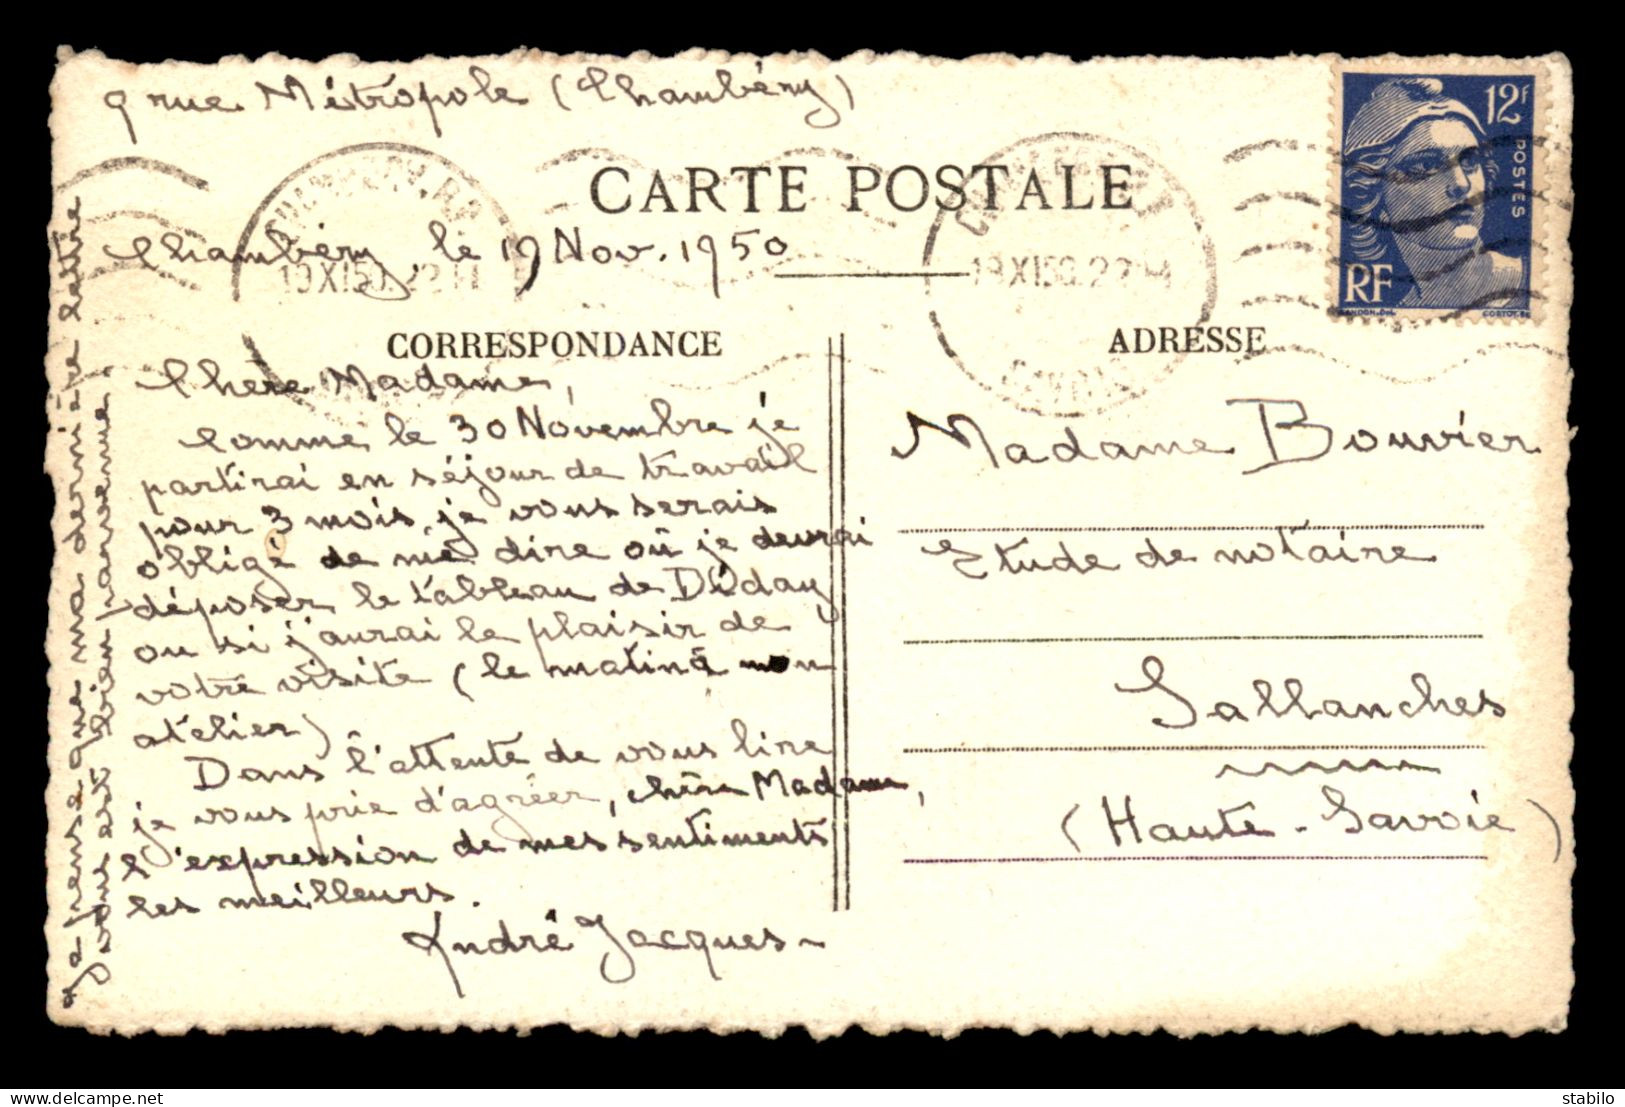 9 rue Métropole (Chambéry)
CARTE POSTALE
Chambéry le 19 Nov. 1950
19XI50.22H
19XI50.22H
12F
POSTES
RF
GANDON.Del.
CORTOT.SC
CORRESPONDANCE
Chère Madame,
Comme le 30 Novembre je
partirai en séjour de travail
pour 3 mois, je vous serais
obligé de me dire où je devrai
déposer le tableau de Diday
ou si j'aurai le plaisir de
votre visite (le matin à mon
atelier)
Dans l'attente de vous lire
je vous prie d'agréer, chère Madame,
l'expression de mes sentiments
les meilleurs.
André Jacques
Je pense que ma dernière lettre
vous est bien parvenue.
ADRESSE
Madame Bouvier
Etude de notaire
Sallanches
(Haute-Savoie)
stabilo
delcampe.net